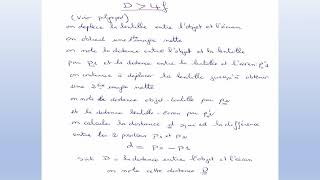 D > 4f
(Voir polycopié)
on déplace la lentille entre l'objet et l'écran
on obtient une 1ère image nette
on note la distance entre l'objet et la lentille
par p1 et la distance entre la lentille et l'écran p'1
on continue à déplacer la lentille jusqu'à obtenir
une 2ème image nette
on note la distance objet-lentille par p2
et la distance lentille-écran par p'2
on calcule la distance d qui est la différence
entre les 2 positions p1 et p2
d = p2 - p1
Soit D = la distance entre l'objet et l'écran
on note cette distance